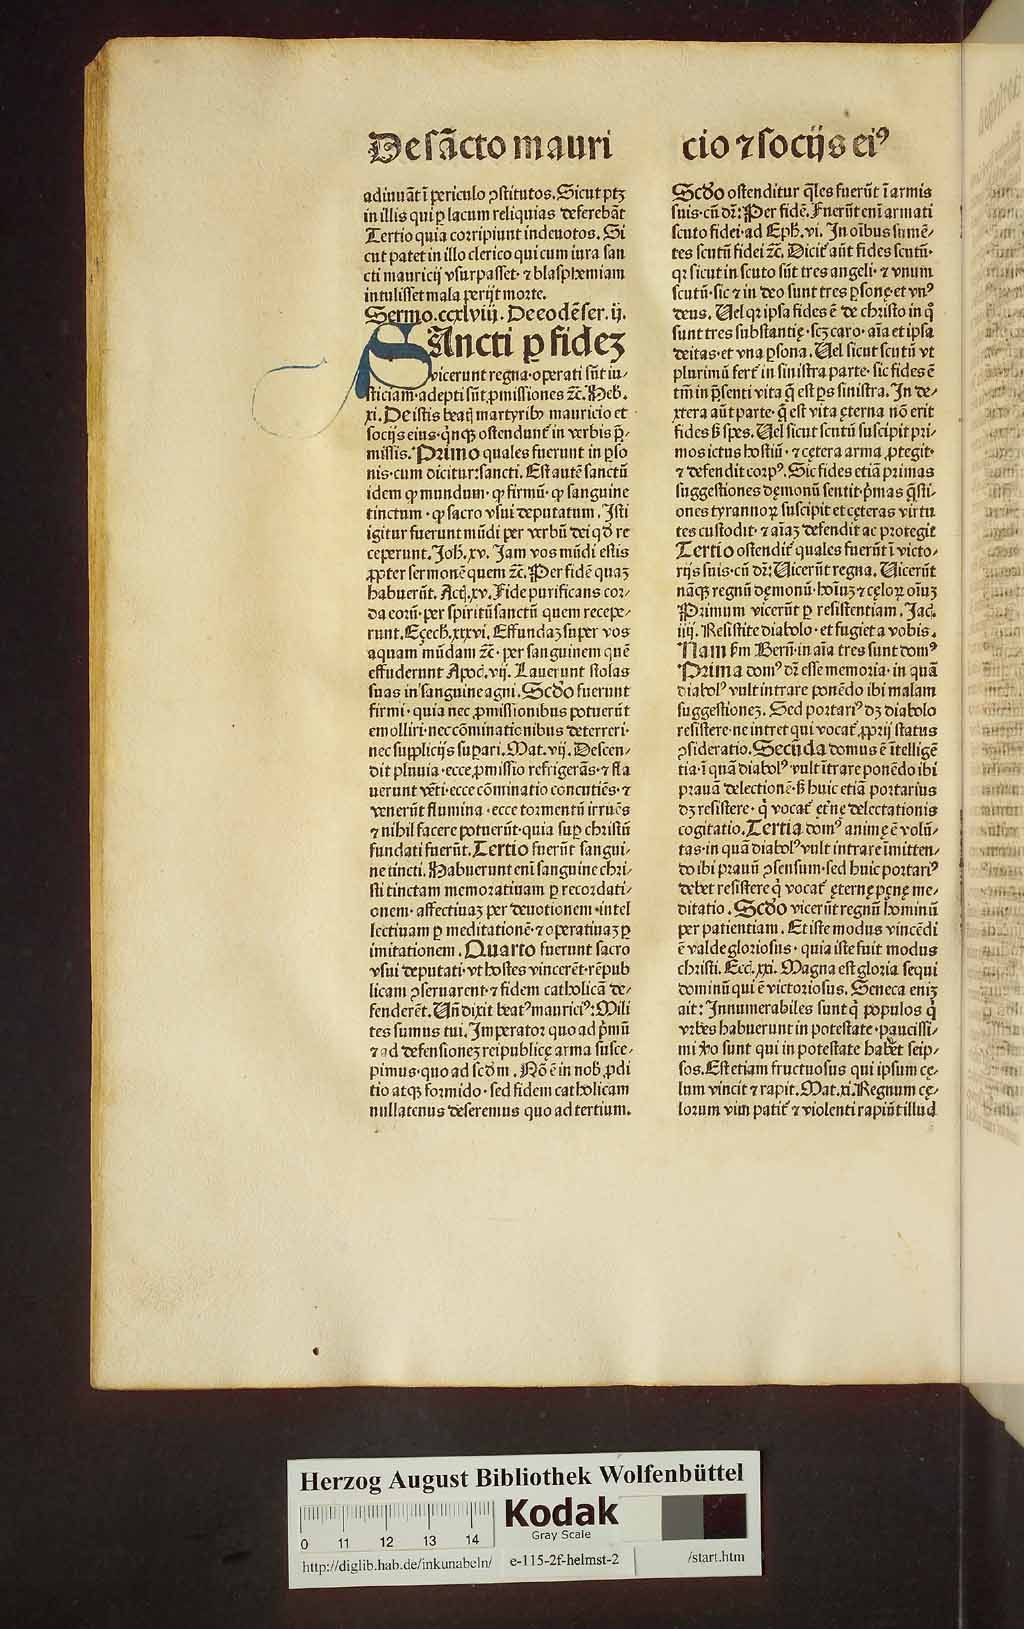 De sãcto mauri
cio ⁊ socijs eiꝰ
adinuãt ĩ periculo ↄstitutos. Sicut ptꝫ
in illis qui ꝑ lacum reliquias deferebãt
Tertio quia corripiunt indeuotos. Si
cut patet in illo clerico qui cum iura san
cti mauricij vsurpasset· ⁊ blasphemiam
intulisset mala perijt morte.
Sermo.ccxlviij. De eodẽ ser. ij.
SAncti ꝑ fideꝫ
vicerunt regna· operati sũt iu-
sticiam· adepti sũt ꝓmissiones ⁊c̃. Heb̃.
xi. De istis beatꝭ martyribꝫ mauricio et
socijs eius· qͥnqꝫ ostenduntᷣ in verbis p̃-
missis. Primo quales fuerunt in ꝑso
nis· cum dicitur: sancti. Est autẽ sanctũ
idem ꝙ mundum· ꝙ firmũ· ꝙ sanguine
tinctum· ꝙ sacro vsui deputatum. Isti
igitur fuerunt mũdi per verbũ dei qd̕ re
ceperunt. Joh̃. xv. Jam vos mũdi estis
ꝓpter sermonẽ quem ⁊c̃. Per fidẽ quaꝫ
habuerũt. Actꝭ. xv. Fide purificans cor-
da eorũ· per spiritũ sanctũ quem recepe-
runt. Eçech̃. xxxvi. Effundaꝫ super vos
aquam mũdam ⁊c̃· per sanguinem quẽ
effuderunt Apoc̃. vij. Lauerunt stolas
suas in sanguine agni. Scd̕o fuerunt
firmi· quia nec ꝓmissionibus potuerũt
emolliri· nec cõminationibus deterreri·
nec supplicijs suꝑari. Mat. vij. Descen-
dit pluuia· ecce ꝓmissio refrigerãs· ⁊ fla
uerunt vẽti· ecce cõminatio concutiẽs· ⁊
venerũt flumina· ecce tormentũ irruẽs
⁊ nihil facere potuerũt· quia suꝑ christũ
fundati fuerũt. Tertio fuerũt sangui-
ne tincti. Habuerunt enĩ sanguine chri-
sti tinctam memoratiuam ꝑ recordati-
onem· affectiuaꝫ per deuotionem· intel
lectiuam ꝑ meditationẽ· ⁊ operatiuaꝫ ꝑ
imitationem. Quarto fuerunt sacro
vsui deputati· vt hostes vincerẽt· rẽpub
licam ↄseruarent· ⁊ fidem catholicã de-
fenderẽt. Vñ dixit beatꝰ mauriciꝰ: Mili
tes sumus tui. Imperator quo ad pͥmũ
⁊ ad defensioneꝫ reipublicę arma susce-
pimus· quo ad scd̕m. Nõ ẽ in nob̕ ꝓdi
tio atqꝫ formido· sed fidem catholicam
nullatenus deseremus quo ad tertium.
Scd̕o ostenditur q̃les fuerũt ĩ armis
suis· cũ dr̃: Per fidẽ. Fuerũt enĩ armati
scuto fidei· ad Eph̃. vi. In oĩbus sumẽ-
tes scutũ fidei ⁊c̃. Dicitᷣ aũt fides scutũ·
qꝛ sicut in scuto sũt tres angeli· ⁊ vnum
scutũ· sic ⁊ in deo sunt tres ꝑsonę· et vnꝰ
deus. Uel qꝛ ipsa fides ẽ de christo in qͦ
sunt tres substantię· scꝫ caro· aĩa et ipsa
deitas· et vna ꝑsona. Uel sicut scutũ vt
plurimũ fertᷣ in sinistra parte· sic fides ẽ
tm̃ in p̃senti vita q̃ est ꝑs sinistra. In de-
xtera aũt parte· q̃ est vita ęterna nõ erit
fides ẞ spes. Uel sicut scutũ suscipit pri-
mos ictus hostiũ· ⁊ cętera arma ꝓtegit·
⁊ defendit corpꝰ. Sic fides etiã primas
suggestiones dęmonũ sentit· pͥmas q̃sti-
ones tyrannoꝝ suscipit et cęteras virtu
tes custodit· ⁊ aĩaꝫ defendit ac protegit
Tertio ostenditᷣ quales fuerũt ĩ victo-
rijs suis· cũ dr̃: Uicerũt regna. Uicerũt
nãqꝫ regnũ dęmonũ· hoĩuꝫ ⁊ cęloꝝ oĩuꝫ
Primum vicerũt ꝑ resistentiam. Jac̃.
iiij. Resistite diabolo· et fugiet a vobis.
Nam ẞm Bern̕· in aĩa tres sunt domꝰ
Prima domꝰ dr̃ esse memoria· in quã
diabolꝰ vult intrare ponẽdo ibi malam
suggestioneꝫ. Sed portariꝰ dꝫ diabolo
resistere· ne intret qui vocatᷣ ꝓprij status
ↄsideratio. Secũda domus ẽ ĩtelligẽ
tia· ĩ quã diabolꝰ vult ĩtrare ponẽdo ibi
prauã delectionẽ· ẞ huic etiã portarius
dꝫ resistere· qͥ vocatᷣ et̕nę delectationis
cogitatio. Tertia domꝰ animę ẽ volũ-
tas· in quã diabolꝰ vult intrare ĩmitten-
do ibi prauũ ↄsensum· sed huic portariꝰ
debet resistere qͥ vocatᷣ ęternę pęnę me-
ditatio. Scd̕o vicerũt regnũ hominũ
per patientiam. Et iste modus vincẽdi
ẽ valde gloriosus· quia iste fuit modus
christi. Ecc̃. xxi. Magna est gloria sequi
dominũ qui ẽ victoriosus. Seneca eniꝫ
ait: Innumerabiles sunt qͥ populos qͥ
vrbes habuerunt in potestate· paucissi-
mi v̕o sunt qui in potestate habẽt seip-
sos. Est etiam fructuosus qui ipsum cę-
lum vincit ⁊ rapit. Mat. xi. Regnum cę-
lorum vim patitᷣ ⁊ violenti rapiũt illud
Herzog August Bibliothek Wolfenbüttel
Kodak
Gray Scale
0 11 12 13 14
http://diglib.hab.de/inkunabeln/ e-115-2f-helmst-2 /start.htm